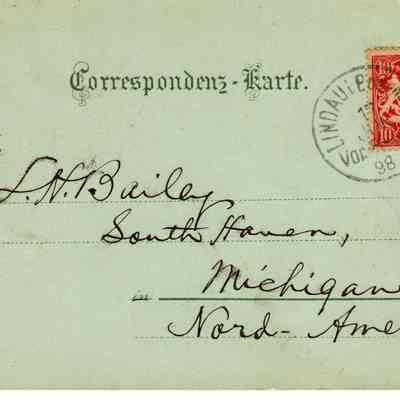 Correspondenz-Karte.
10
LINDAU i.B
10
VOR
98
L. H. Bailey
South Haven,
in Michigan
Nord-Ame